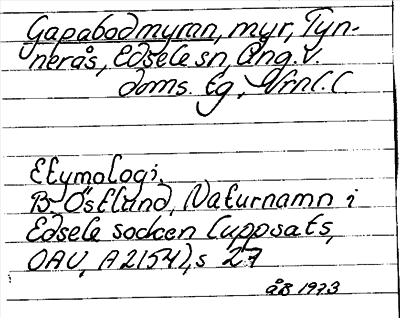 Gapabodmyran, myr, Tyn-
nerås, Edsele sn, Ång. V.
doms. tg, Vrnl. l.
Etymologi.
B. Östlund, Naturnamn i
Edsele socken (uppsats,
OAU, A 2154), s 27
ÅB 1973